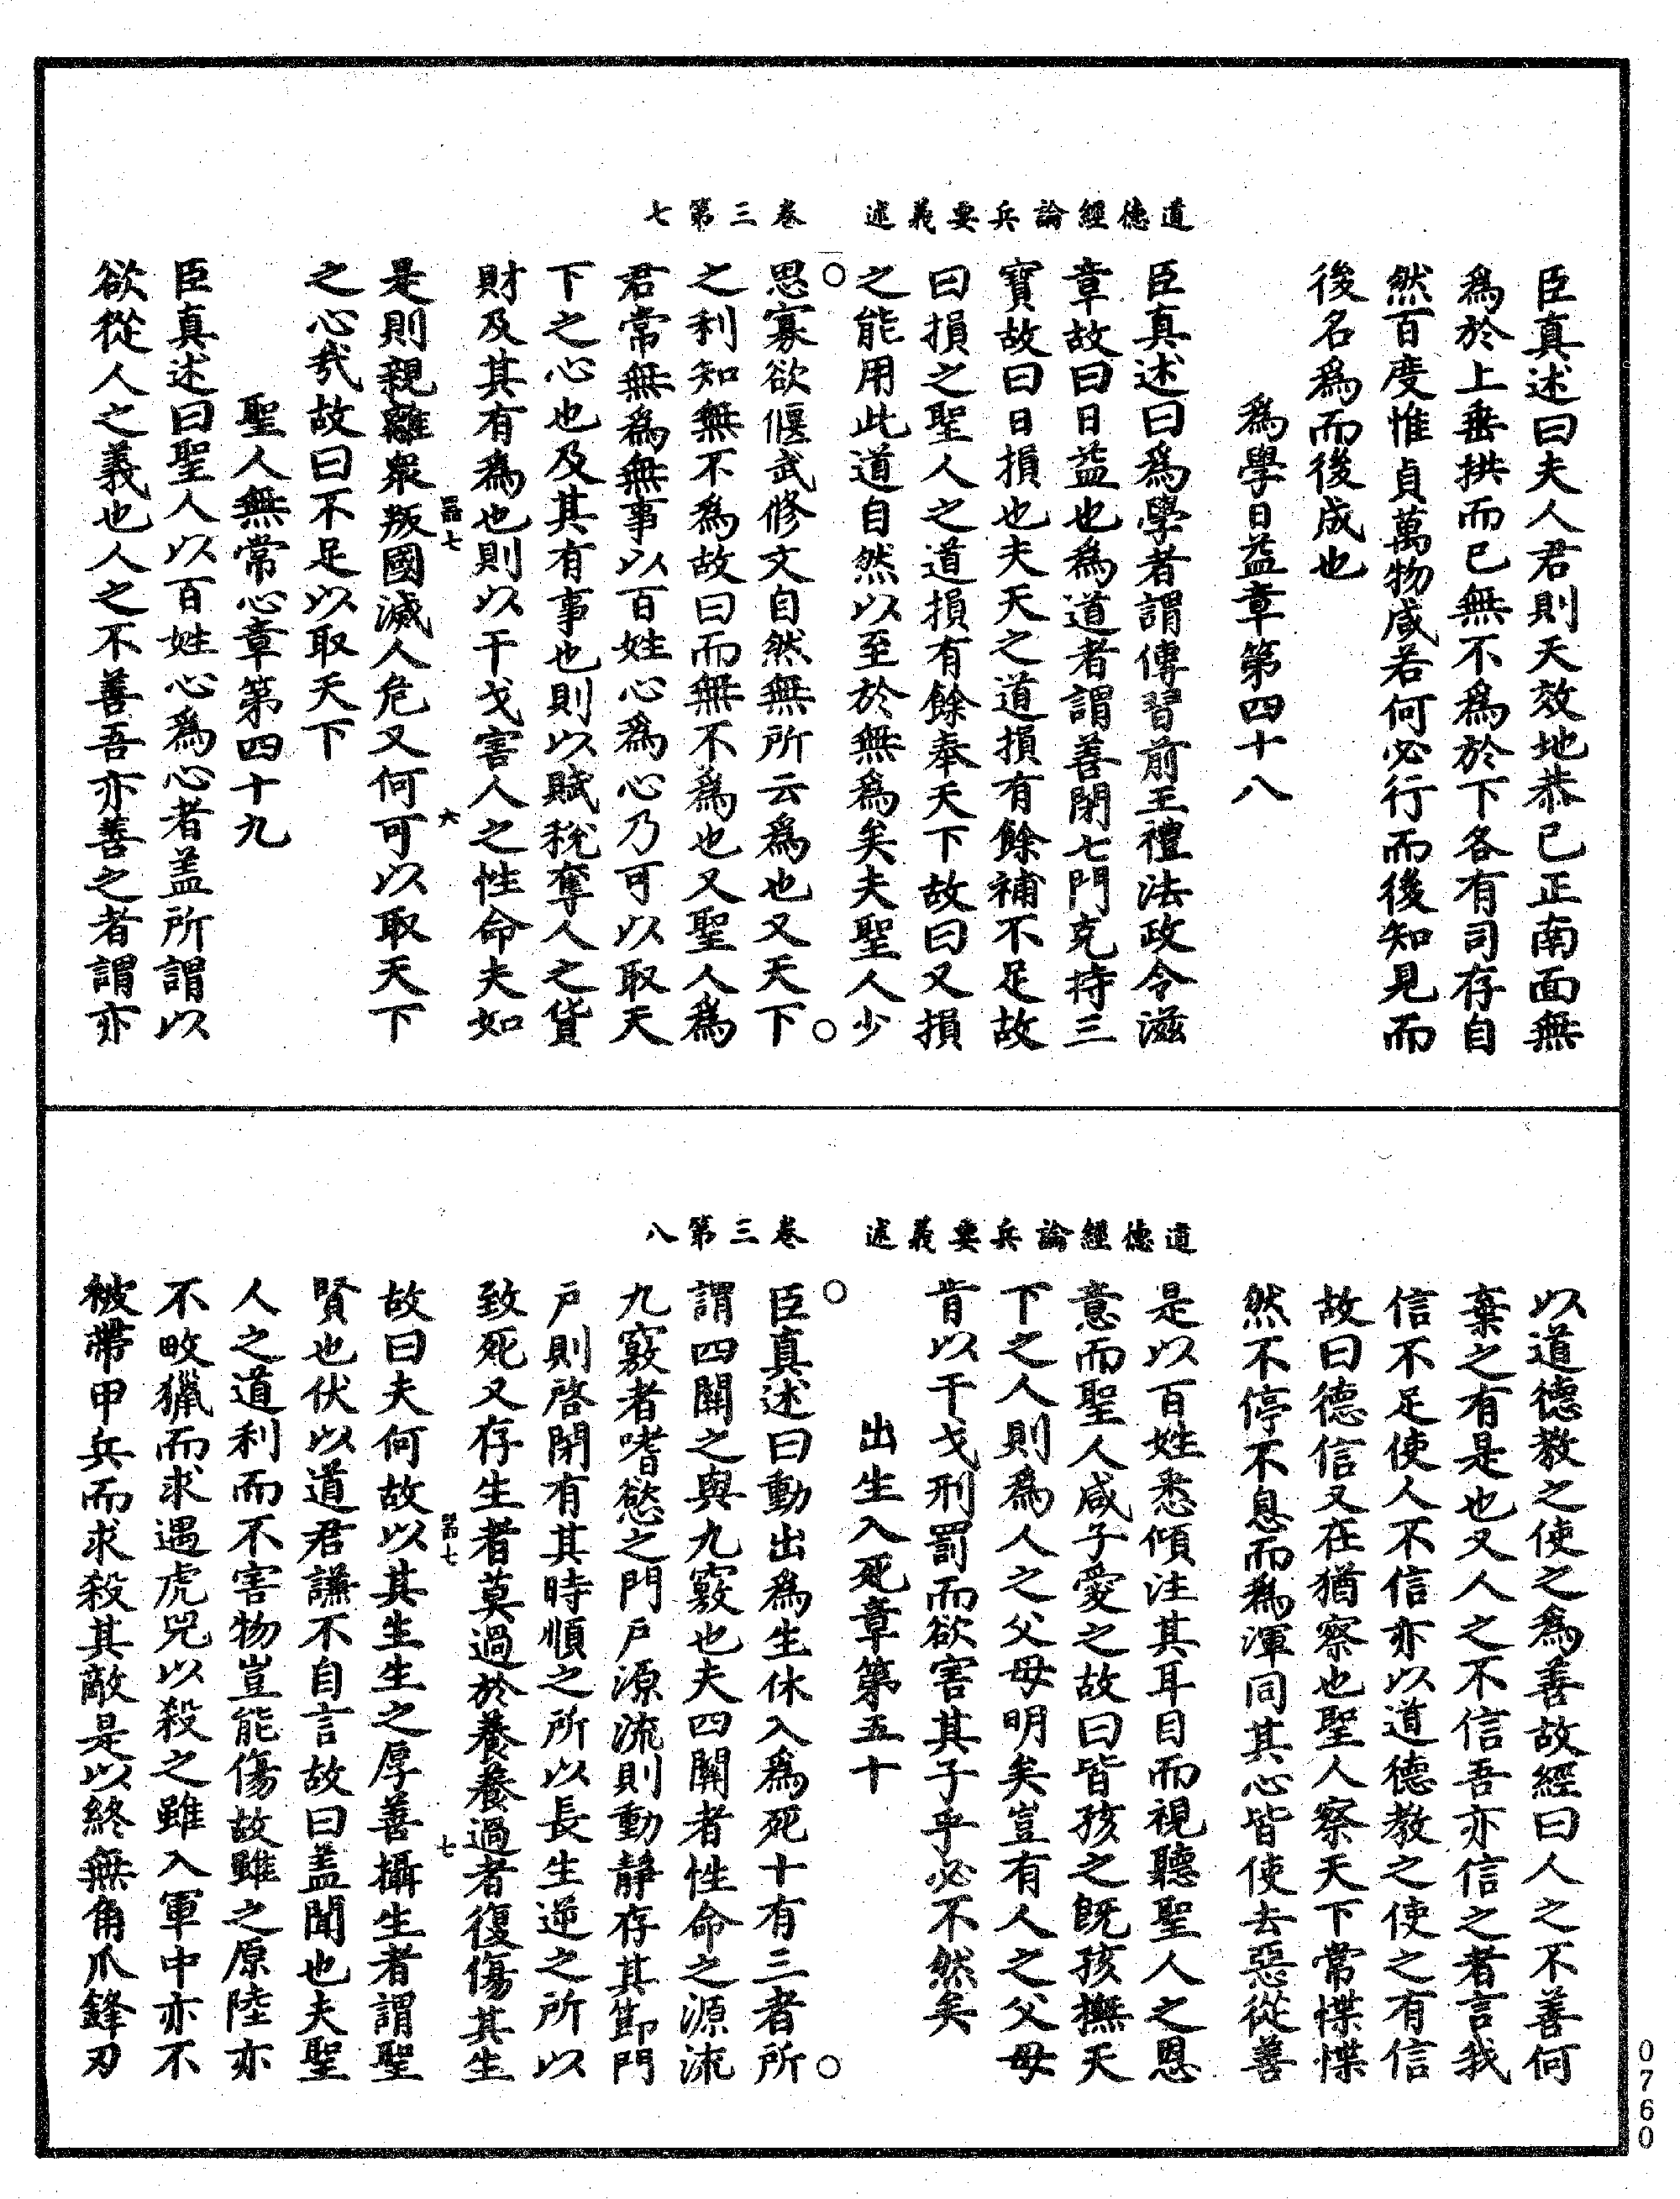 道德經論兵要義述　卷三第七
臣真述曰夫人君則天效地恭己正南面無
為於上垂拱而已無不為於下各有司存自
然百度惟貞萬物咸若何必行而後知見而
後名為而後成也
為學日益章第四十八
臣真述曰為學者謂傳習前王禮法政令滋
章故曰日益也為道者謂善閉七門克持三
寶故曰日損也夫天之道損有餘補不足故
曰損之聖人之道損有餘奉天下故曰又損
之能用此道自然以至於無為矣夫聖人少
思寡欲偃武修文自然無所云為也又天下
之利知無不為故曰而無不為也又聖人為
君常無為無事以百姓心為心乃可以取天
下之心也及其有事也則以賦稅奪人之貨
財及其有為也則以干戈害人之性命夫如
是則親離衆叛國滅人危又何可以取天下
之心哉故曰不足以取天下
聖人無常心章第四十九
臣真述曰聖人以百姓心為心者盖所謂以
欲從人之義也人之不善吾亦善之者謂亦
道德經論兵要義述　卷三第八
以道德教之使之為善故經曰人之不善何
棄之有是也又人之不信吾亦信之者言我
信不足使人不信亦以道德教之使之有信
故曰德信又在猶察也聖人察天下常惵惵
然不停不息而為渾同其心皆使去惡從善
是以百姓悉傾注其耳目而視聽聖人之恩
意而聖人咸子愛之故曰皆孩之既孩撫天
下之人則為人之父母明矣豈有人之父母
肯以干戈刑罰而欲害其子乎必不然矣
出生入死章第五十
臣真述曰動出為生休入為死十有三者所
謂四關之與九竅也夫四關者性命之源流
九竅者嗜慾之門戶源流則動靜存其節門
戶則啓閉有其時順之所以長生逆之所以
致死又存生者莫過於養養過者復傷其生
故曰夫何故以其生生之厚善攝生者謂聖
賢也伏以道君謙不自言故曰盖聞也夫聖
人之道利而不害物豈能傷故雖之原陸亦
不畋獵而求遇虎兕以殺之雖入軍中亦不
被帶甲兵而求殺其敵是以終無角爪鋒刃
0760